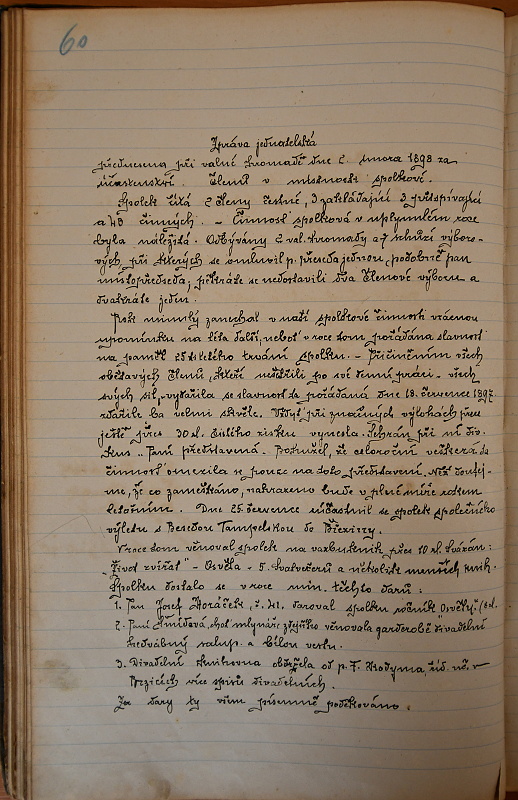 60
Zpráva jednatelská
přednesena při valné hromadě dne 2. února 1898 za
účastenství členů v místnosti spolkové.
Spolek čítá 2 členy čestné, 3 zakládající 3 přispívající
a 43 činných. - Činnost spolková v uplynulém roce
byla náležitá. Odbývány 2 val. hromady a 7 schůzí výboro-
vých, při kterých se omluvil p. předseda jednou, podobně pan
místopředseda; pětkráte se nedostavili dva členové výboru a
dvakráte jedin.
Rok minulý zanechal v naší spolkové činnosti vzácnou
upomínku na léta další, neboť v roce tom pořádána slavnosť
na paměť 25tiletého trvání spolku. - Přičiněním všech
obětavých členů, kteří nešetřili po své denní práci - všech
svých sil, vydařila se slavnosť pořádaná dne 18. července 1897
zdařile ba velmi skvěle. Vždyť při značných výlohách přec
ještě přes 30 zl. čistého zisku vynesla. Sehrán při ní div.
kus "Paní představená. Bohužel, že celoroční veškerá
činnosť omezila se pouze na toto představení. Než doufej-
me, že co zameškáno, nahraženo bude v plné míře rokem
letošním. Dne 25. července súčastnil se spolek společného
výletu s Besedou Tampelskou do Březiny.
V roce tom věnoval spolek na knih přes 10 zl. :
"Život zvířat" - Osvěta - 5. a několik menších knih.
Spolku dostalo se v roce min. těchto darů:
1. Pan Josef Horáček, č. 41. daroval spolku ročník "Osvěty"
2. Paní Šmídová, choť mlynáře zdejšího věnovala garderobě divadelní
hedvábný salup a bílou vestu.
3. Divadelní knihovna obdržela od p. F. úč. v
Brzicích více spisů divadelních.
Za dary ty všem písemně poděkováno.